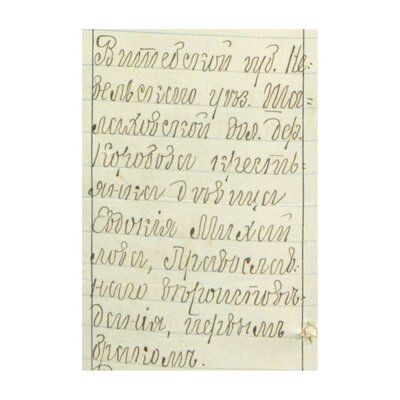 Витебской губ. Не=
вельского уез. Та=
лаховской вол. дер.
Короваза крестья=
янка девица
Евдокія Михай
лова, Православ=
наго вѣроисповѣ=
данія, первымъ
бракомъ.